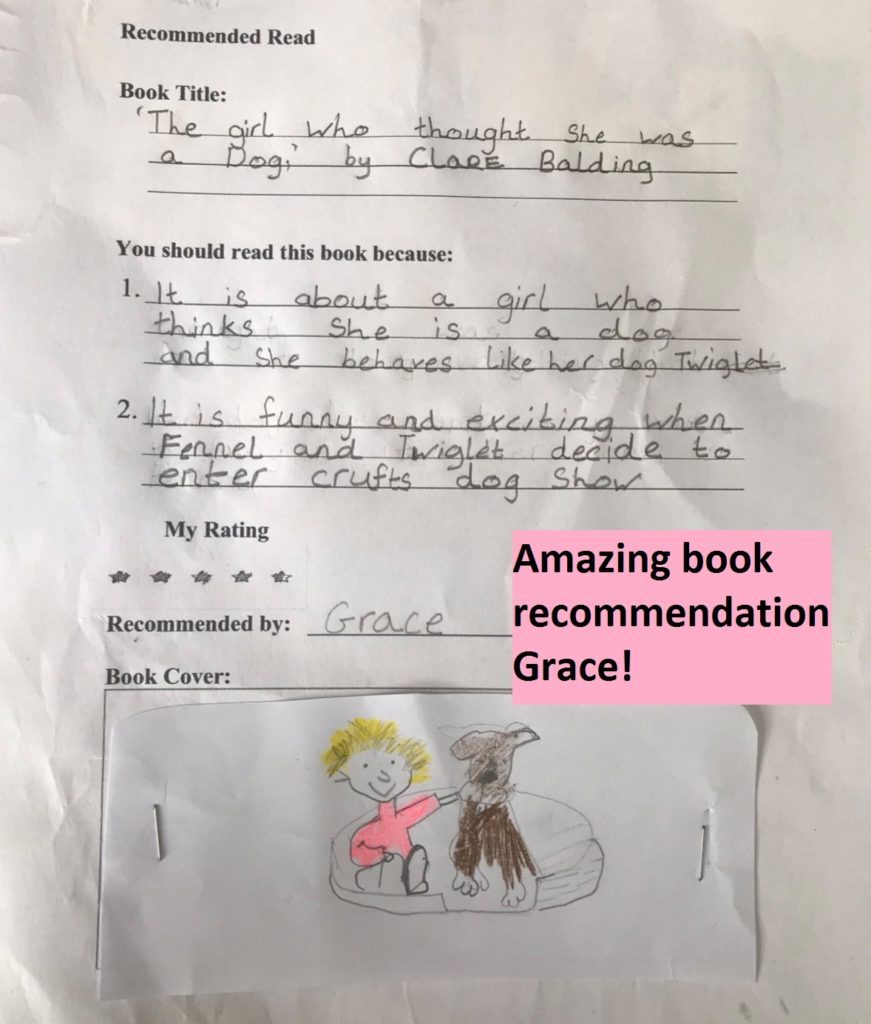 Recommended Read
Book Title:
'The girl who thought she was
a Dog,' by CLARE Balding
You should read this book because:
1. It is about a girl who
thinks she is a dog
and she behaves like her dog Twiglet.
2. It is funny and exciting when
Fennel and Twiglet decide to
enter crufts dog show
My Rating
Recommended by: Grace
Amazing book
recommendation
Grace!
Book Cover: